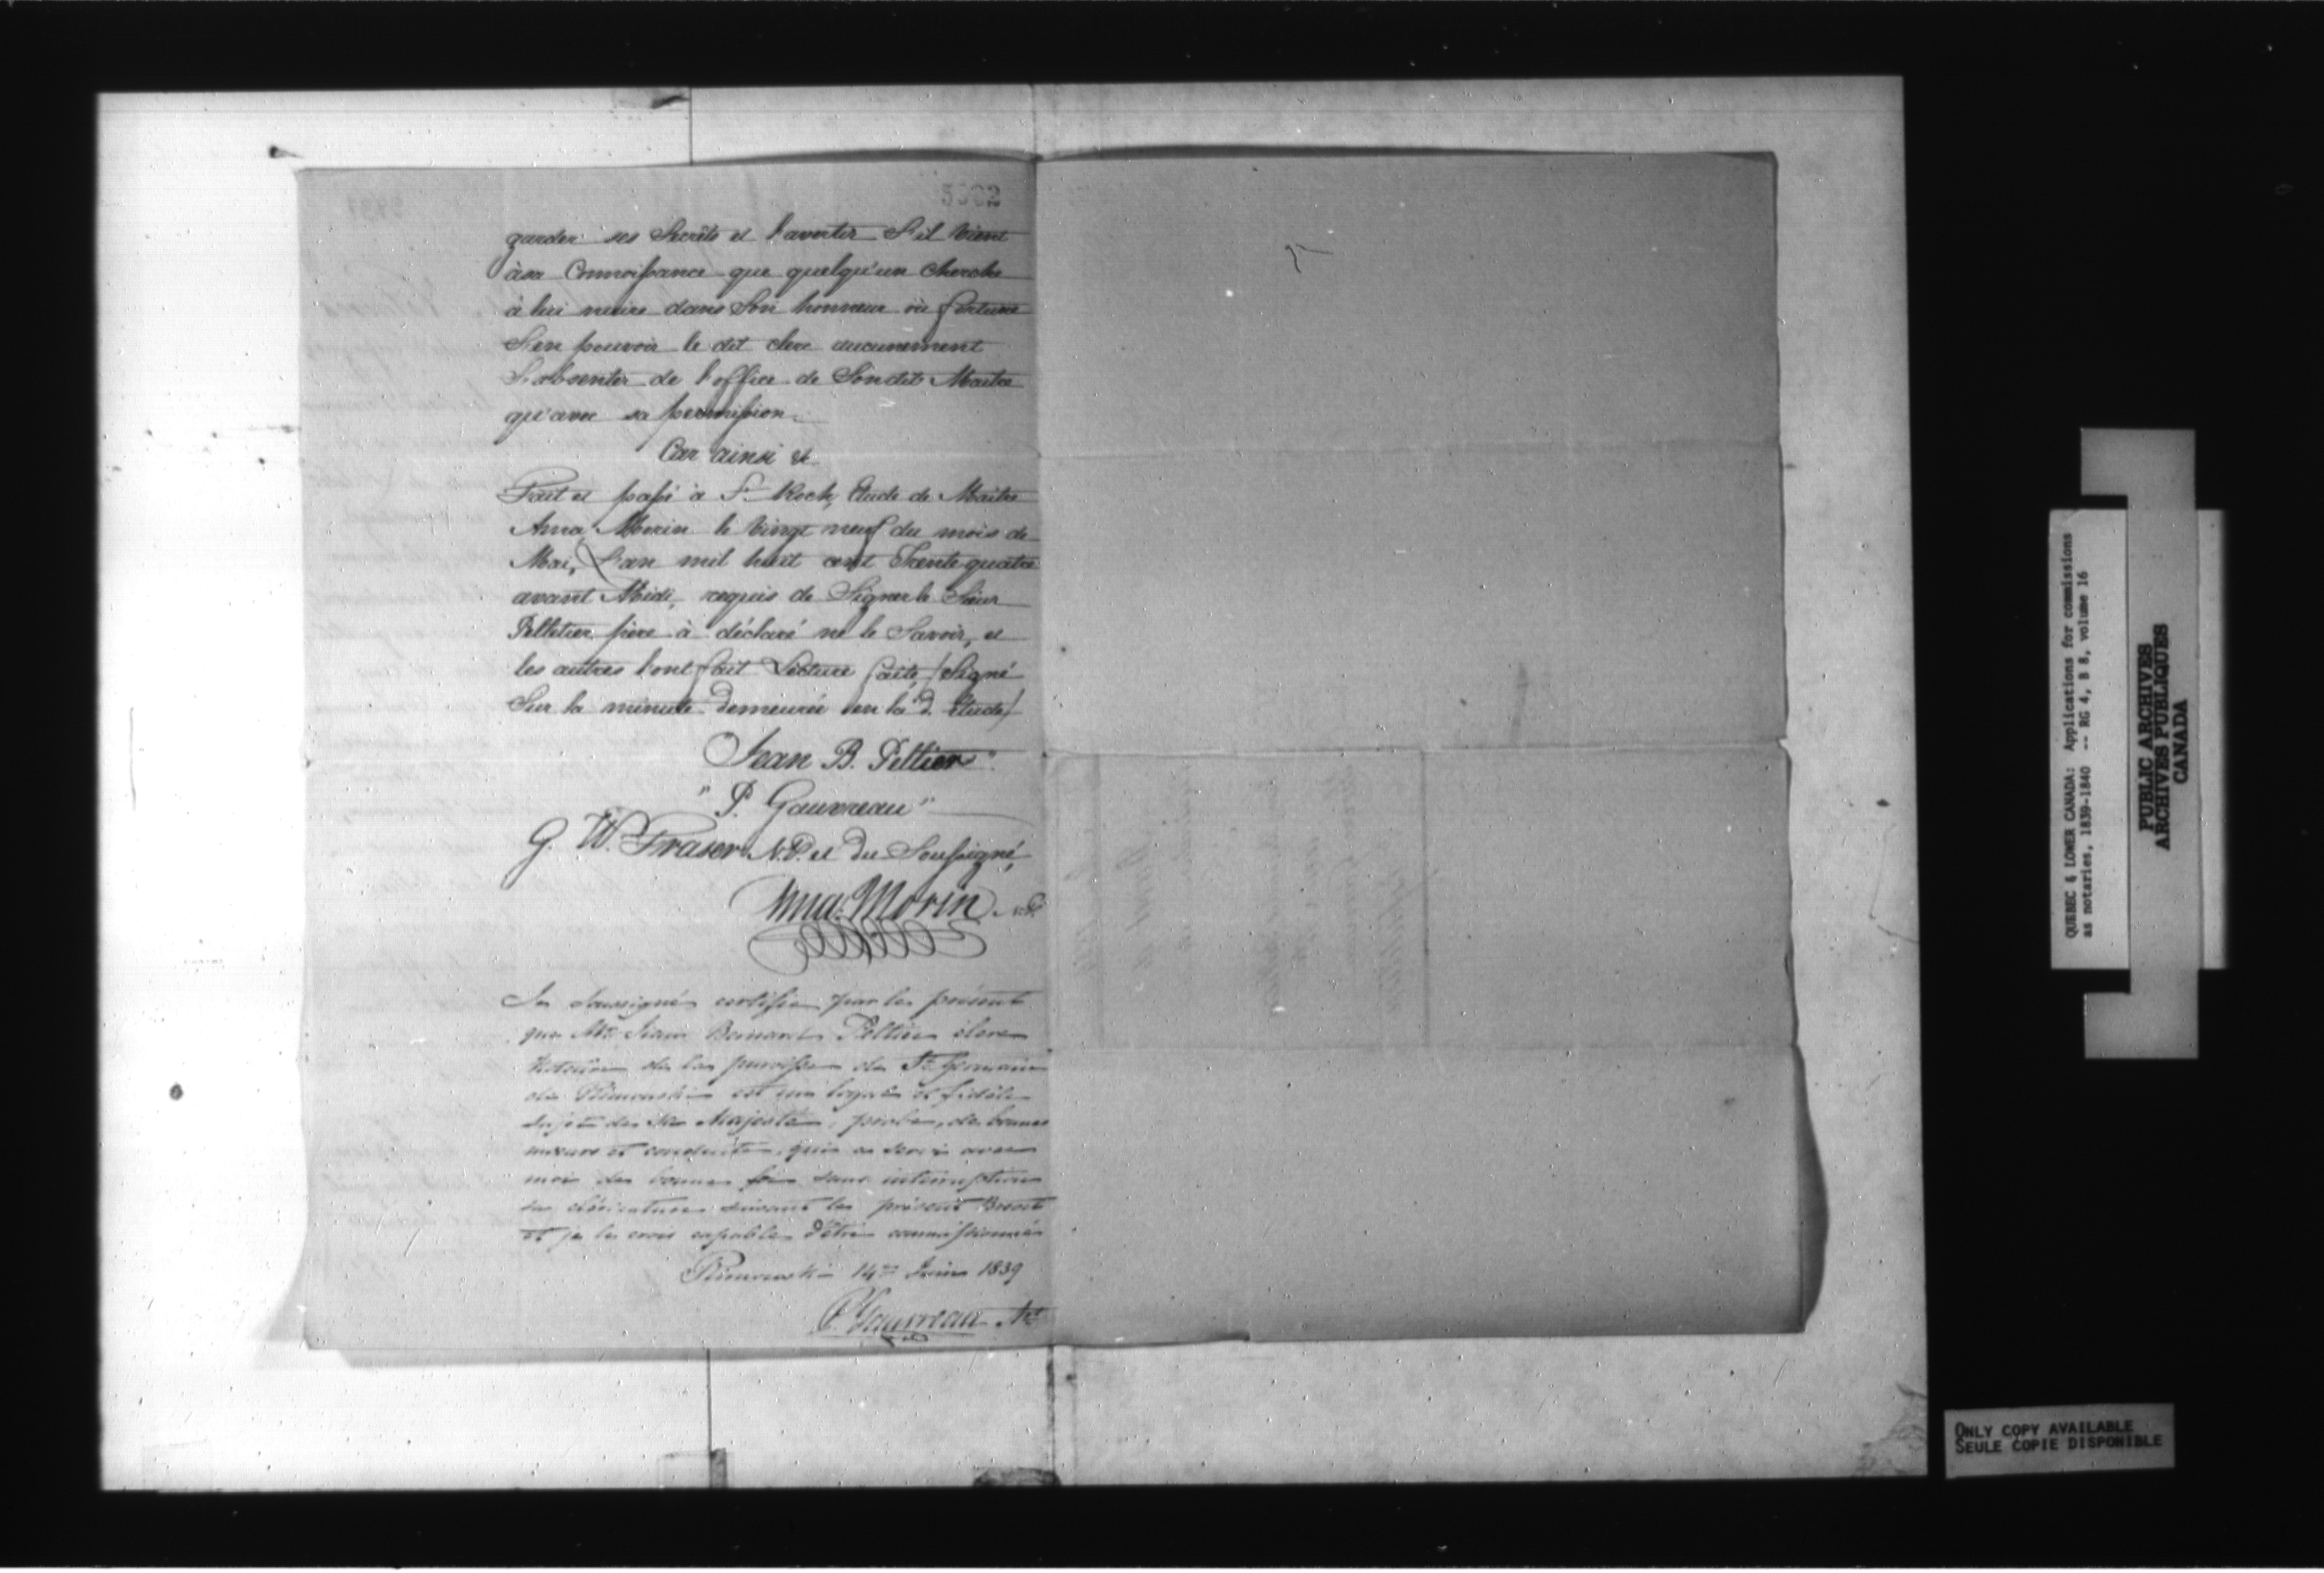 5502
garder ses Secrêts et l'avertir S'il Vient
à sa Connoissance que quelqu'un cherche
à lui nuire dans Son honneur où fortune
S'en pouvoir le dit clerc aucunement
S'absenter de l'office de Sondit Maitre
qu'avec sa permission.
Car ainsi &
Fait et passé à St. Roch, Etude de Maitre
Ama. Morin le Vingt neuf du mois de
Mai, L'an mil huit cent Trente quatre
avant Midi, requis de Signer le Sieur
Pelletier père à déclaré ne le Savoir, et
les autres l'ont fait Lecture faite, /Signé
Sur la minute Demeurée en la d. Etude/
Jean B. Peltier"
" P. Gauvreau"
G. W. Fraser N.P. et du Soussigné,
Ama. Morin N.P.
Je Soussigné certifie par les présent
que Mr. Jean Bernard Peltier clerc
Notaire de la paroisse de St. Germain
de Rimouski est un loyal et fidèle
Sujet de Sa Majesté, probe, de bonnes
mœurs et conduite, qui a servi avec
moi de bonne foi sans interruption
sa cléricature suivant le présent Brevet
et je le crois capable d'être commissionné
Rimouski 14 Juin 1839
P. Gauvreau Nre
QUEBEC & LOWER CANADA: Applications for commissions
as notaries, 1839-1840 -- RG 4, B 8, volume 16
PUBLIC ARCHIVES
ARCHIVES PUBLIQUES
CANADA
ONLY COPY AVAILABLE
SEULE COPIE DISPONIBLE